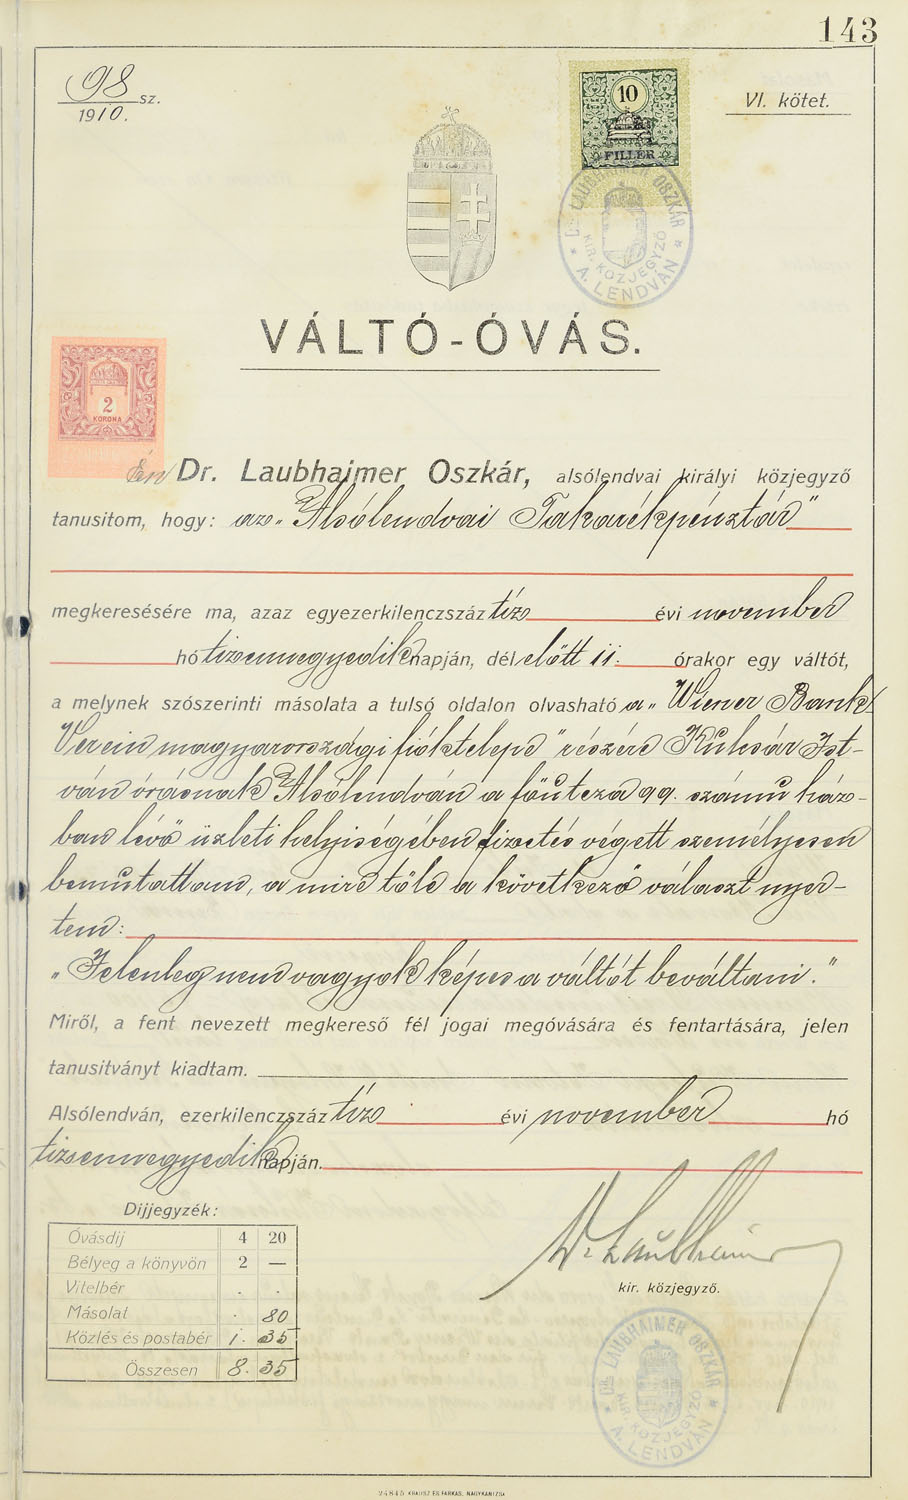 143
98 sz.
1910.
VI. kötet.
10
FILLÉR
Dr. LAUBHAIMER OSZKÁR
KIR. KÖZJEGYZŐ
* A. LENDVÁN *
VÁLTÓ-ÓVÁS.
2
KORONA
Én Dr. Laubhaimer Oszkár, alsólendvai királyi közjegyző
tanusitom, hogy: az „Alsólendvai Takarékpénztár"
megkeresésére ma, azaz egyezerkilenczszáz tíz évi november
hó tizennegyedik napján, dél előtt 11. órakor egy váltót,
a melynek szószerinti másolata a tulsó oldalon olvasható a „Wiener Bank
Verein magyarországi fióktelepe" részére Kulcsár Ist-
ván órásnak Alsólendván a főutcza 99. számu ház-
ban lévő üzleti helyiségében fizetés végett személyesen
bemutattam, a mire tőle a következő választ nyer-
tem:
„Jelenleg nem vagyok képes a váltót beváltani."
Miről, a fent nevezett megkereső fél jogai megóvására és fentartására, jelen
tanusitványt kiadtam.
Alsólendván, ezerkilenczszáz tíz évi november hó
tizennegyedik napján.
Dijjegyzék:
Óvásdij 4 20
Bélyeg a könyvön 2 —
Vitelbér . .
Másolat . 80
Közlés és postabér 1. 35
Összesen 8. 35
Dr Laubhaimer
kir. közjegyző.
Dr. LAUBHAIMER OSZKÁR
KIR. KÖZJEGYZŐ
* A. LENDVÁN *
24845 KRAUSZ ÉS FARKAS, NAGYKANIZSA